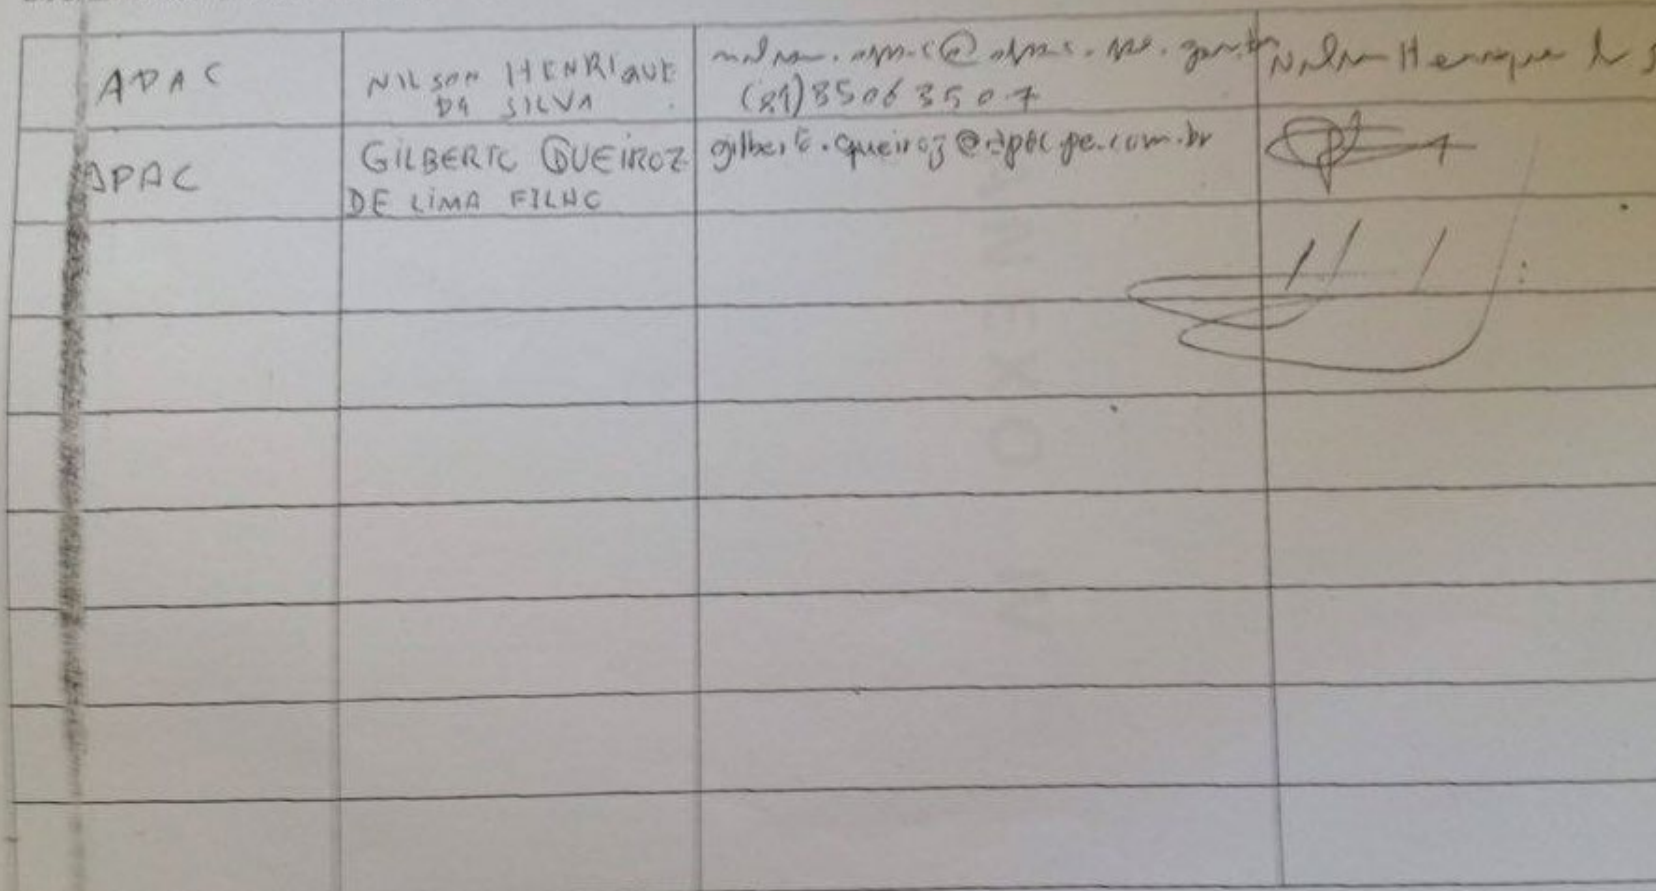 APAC
NILSON HENRIQUE
DA SILVA
(81)85063507
Nilson Henrique
APAC
GILBERTO QUEIROZ
DE LIMA FILHO
gilberto.queiroz@apac.pe.com.br